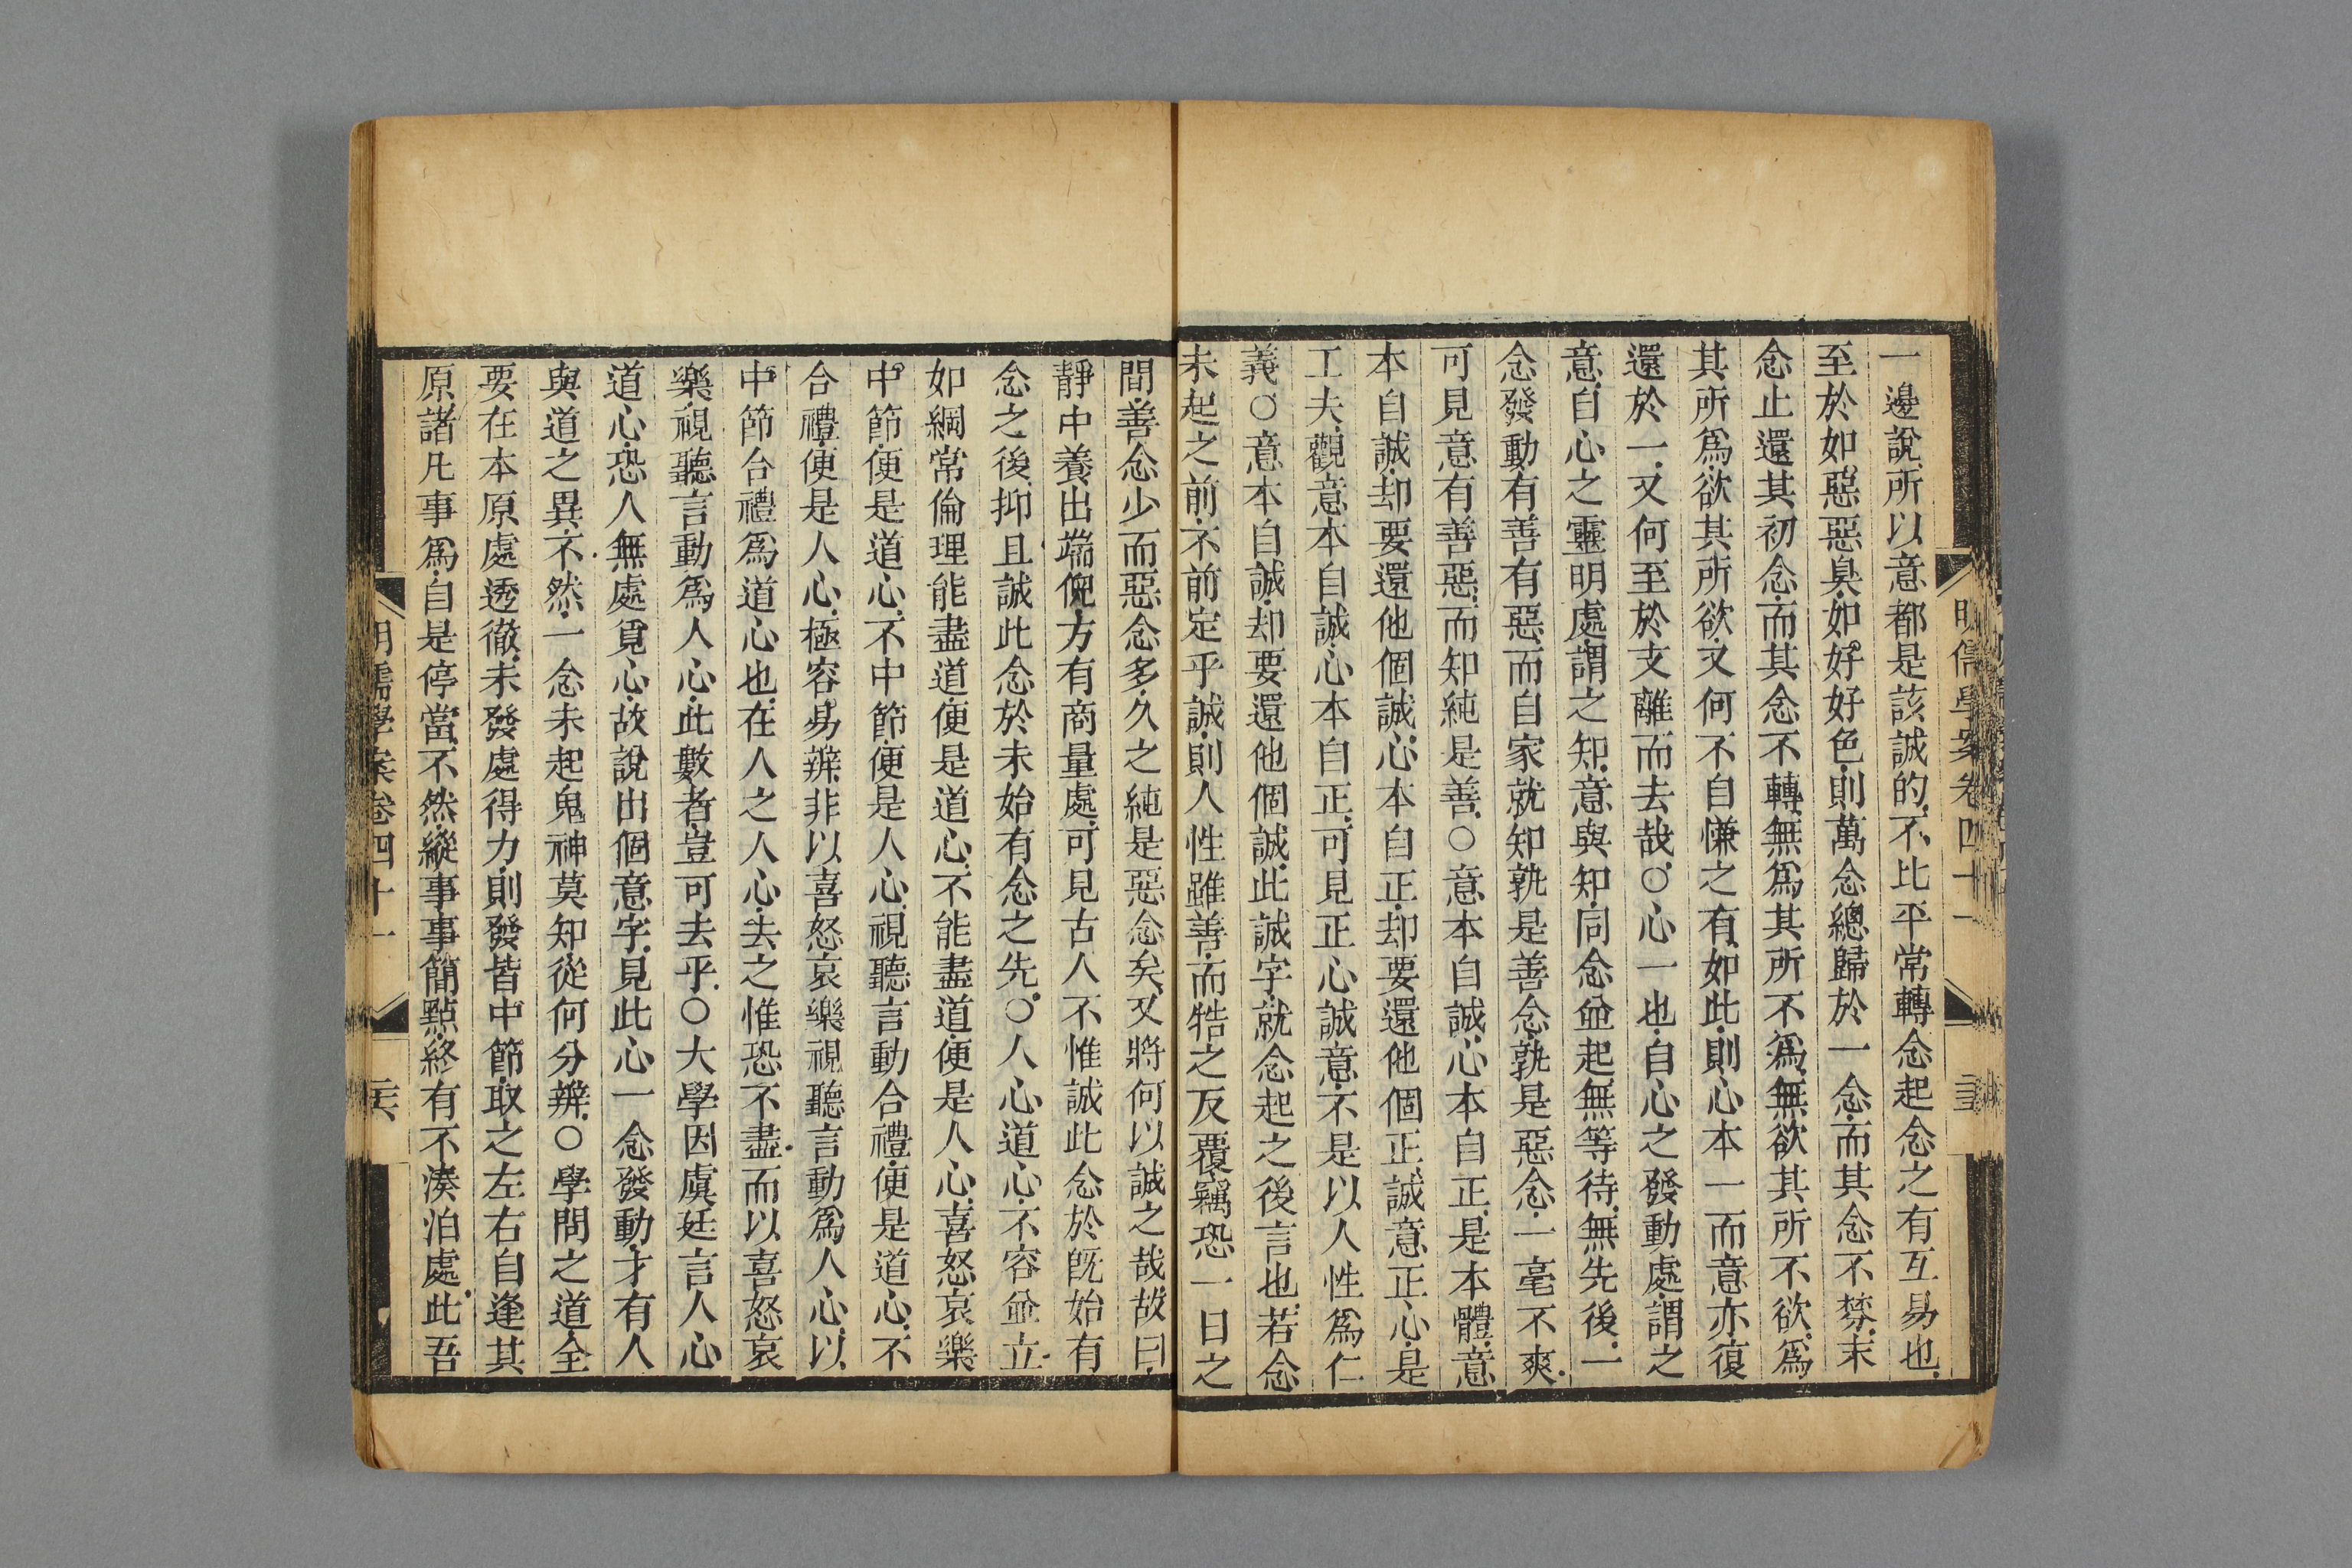 明儒學案卷四十一
一邊說所以意都是該誠的不比平常轉念起念之有互易也
至於如惡惡臭如好好色則萬念總歸於一念而其念不棼末
念止還其初念而其念不轉無爲其所不爲無欲其所不欲爲
其所爲欲其所欲又何不自慊之有如此則心本一而意亦復
還於一又何至於支離而去哉○心一也自心之發動處謂之
意自心之靈明處謂之知意與知同念並起無等待無先後一
念發動有善有惡而自家就知孰是善念孰是惡念一毫不爽
可見意有善惡而知純是善○意本自誠心本自正是本體意
本自誠却要還他個誠心本自正却要還他個正誠意正心是
工夫觀意本自誠心本自正可見正心誠意不是以人性爲仁
義○意本自誠却要還他個誠此誠字就念起之後言也若念
未起之前不前定乎誠則人性雖善而牿之反覆竊恐一日之
間善念少而惡念多久之純是惡念矣又將何以誠之哉故曰
靜中養出端倪方有商量處可見古人不惟誠此念於旣始有
念之後抑且誠此念於未始有念之先○人心道心不容並立
如綱常倫理能盡道便是道心不能盡道便是人心喜怒哀樂
中節便是道心不中節便是人心視聽言動合禮便是道心不
合禮便是人心極容易辨非以喜怒哀樂視聽言動爲人心以
中節合禮爲道心也在人之人心去之惟恐不盡而以喜怒哀
樂視聽言動爲人心此數者豈可去乎○大學因虞廷言人心
道心恐人無處覓心故說出個意字見此心一念發動才有人
與道之異不然一念未起鬼神莫知從何分辨○學問之道全
要在本原處透徹未發處得力則發皆中節取之左右自逢其
原諸凡事爲自是停當不然縱事事簡點終有不湊泊處此吾
明儒學案卷四十一